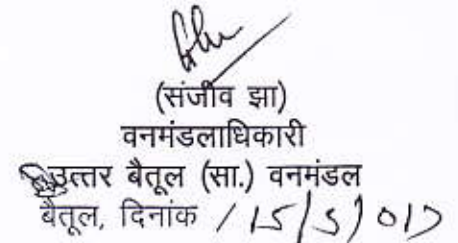 (संजीव झा)
वनमंडलाधिकारी
उत्तर बैतूल (सा.) वनमंडल
बैतूल, दिनांक